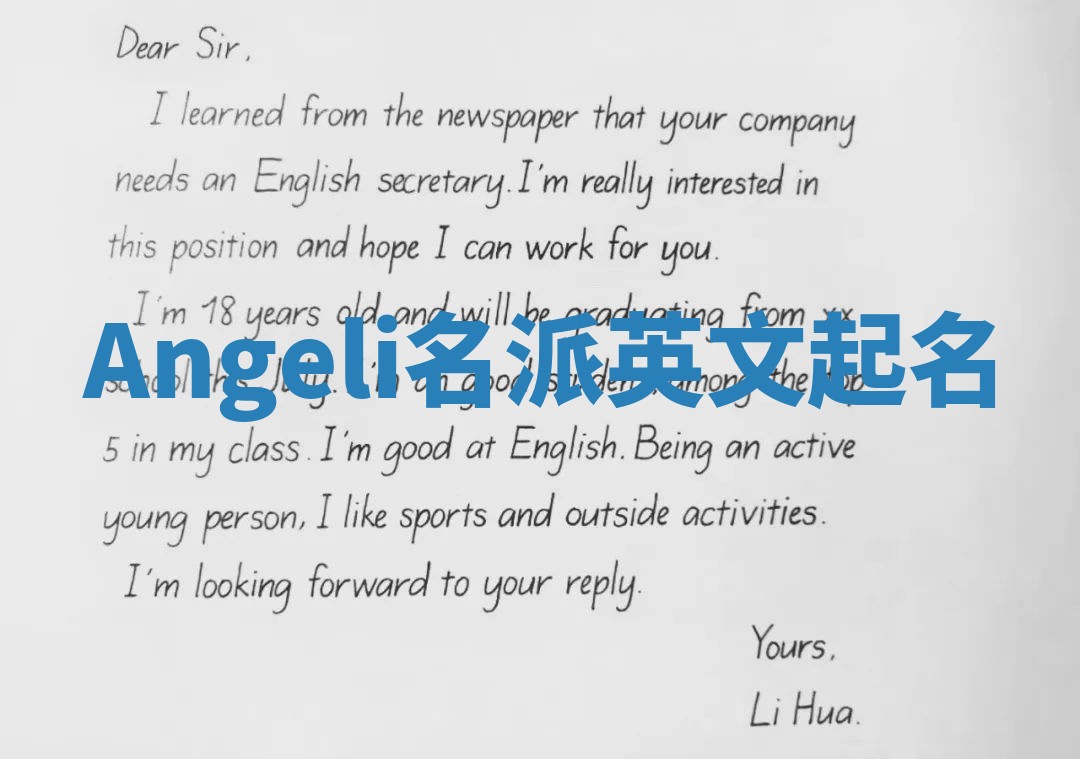 Dear Sir,
I learned from the newspaper that your company
needs an English secretary. I'm really interested in
this position and hope I can work for you.
I'm 18 years old and will be graduating from xx
Angeli名派英文起名
school this July. I'm an good student, among the top
5 in my class. I'm good at English. Being an active
young person, I like sports and outside activities.
I'm looking forward to your reply.
Yours,
Li Hua.